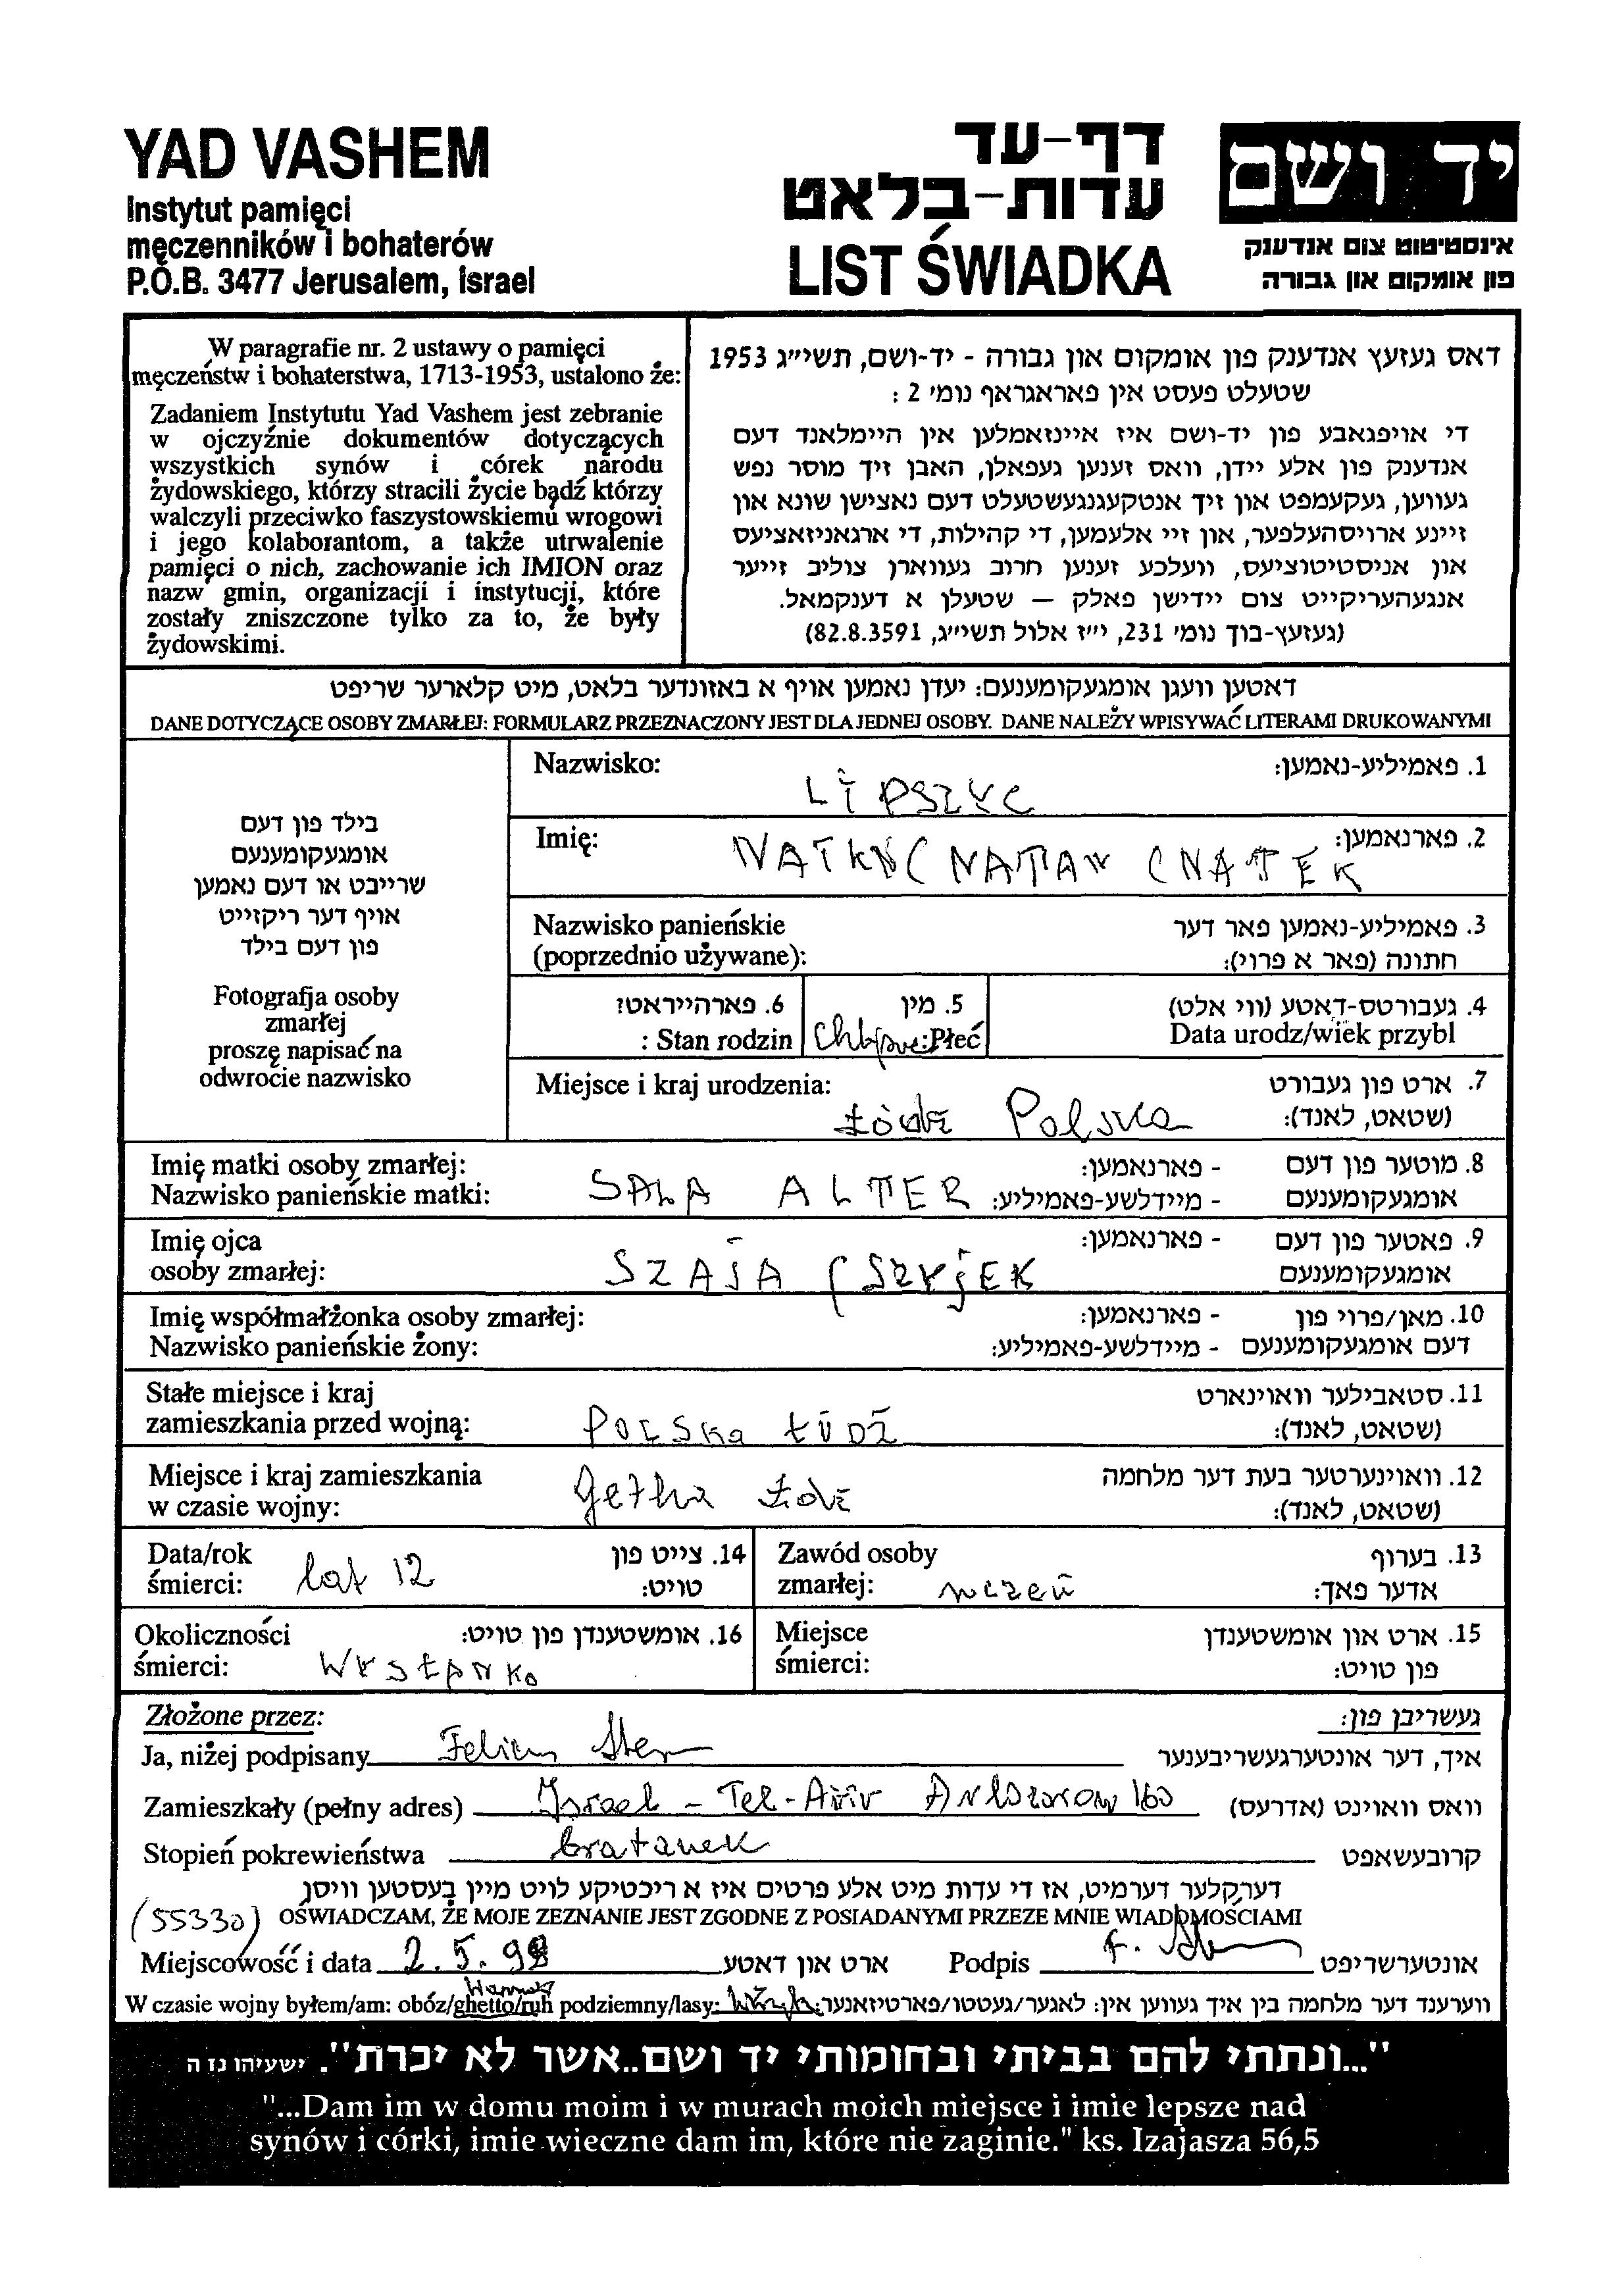 YAD VASHEM
Instytut pamięci
męczenników i bohaterów
P.O.B. 3477 Jerusalem, Israel
דף-עד
עדות-בלאט
LIST ŚWIADKA
יד ושם
אינסטיטוט צום אנדענק
פון אומקום און גבורה
W paragrafie nr. 2 ustawy o pamięci
męczeństw i bohaterstwa, 1713-1953, ustalono że:
Zadaniem Instytutu Yad Vashem jest zebranie
w ojczyźnie dokumentów dotyczących
wszystkich synów i córek narodu
żydowskiego, którzy stracili życie bądź którzy
walczyli przeciwko faszystowskiemu wrogowi
i jego kolaborantom, a także utrwalenie
pamięci o nich, zachowanie ich IMION oraz
nazw gmin, organizacji i instytucji, które
zostały zniszczone tylko za to, że były
żydowskimi.
דאס געזעץ אנדענק פון אומקום און גבורה - יד-ושם, תשי״ג 1953
שטעלט פעסט אין פאראגראף נומ׳ 2 :
די אויפגאבע פון יד-ושם איז איינזאמלען אין היימלאנד דעם
אנדענק פון אלע יידן, וואס זענען געפאלן, האבן זיך מוסר נפש
געווען, געקעמפט און זיך אנטקעגנגעשטעלט דעם נאצישן שונא און
זיינע ארויסהעלפער, און זיי אלעמען, די קהילות, די ארגאניזאציעס
און אניסטיטוציעס, וועלכע זענען חרוב געווארן צוליב זייער
אנגעהעריקייט צום יידישן פאלק – שטעלן א דענקמאל.
(געזעץ-בוך נומ׳ 231, י״ז אלול תשי״ג, 82.8.3591)
דאטען וועגן אומגעקומענעם: יעדן נאמען אויף א באזונדער בלאט, מיט קלארער שריפט
DANE DOTYCZĄCE OSOBY ZMARŁEJ: FORMULARZ PRZEZNACZONY JEST DLA JEDNEJ OSOBY. DANE NALEŻY WPISYWAĆ LITERAMI DRUKOWANYMI
בילד פון דעם
אומגעקומענעם
שרייבט או דעם נאמען
אויף דער ריקזייט
פון דעם בילד
Fotografja osoby
zmarłej
proszę napisać na
odwrocie nazwisko
Nazwisko: LIPSZYC 1. פאמיליע-נאמען:
Imię: NATAN (NATEK 2. פארנאמען:
Nazwisko panieńskie 3. פאמיליע-נאמען פאר דער
(poprzednio używane): חתונה (פאר א פרוי):
6. פארהייראט? 5. מין 4. געבורטס-דאטע (ווי אלט)
: Stan rodzin :Płeć Data urodz/wiek przybl
Miejsce i kraj urodzenia: 7. ארט פון געבורט
Łódź Polska (שטאט, לאנד):
Imię matki osoby zmarłej: - פארנאמען: 8. מוטער פון דעם
Nazwisko panieńskie matki: SALA ALTER - מיידלשע-פאמיליע: אומגעקומענעם
Imię ojca - פארנאמען: 9. פאטער פון דעם
osoby zmarłej: SZAJA (SZYJEK אומגעקומענעם
Imię współmałżonka osoby zmarłej: - פארנאמען: 10. מאן/פרוי פון
Nazwisko panieńskie żony: - מיידלשע-פאמיליע: דעם אומגעקומענעם
Stałe miejsce i kraj 11. סטאבילער וואוינארט
zamieszkania przed wojną: POLSka ŁÓDŹ (שטאט, לאנד):
Miejsce i kraj zamieszkania 12. וואוינערטער בעת דער מלחמה
w czasie wojny: Łódź (שטאט, לאנד):
Data/rok 14. צייט פון Zawód osoby 13. בערוף
śmierci: lat 12 טויט: zmarłej: uczeń אדער פאך:
Okoliczności 16. אומשטענדן פון טויט: Miejsce 15. ארט און אומשטענדן
śmierci: WYSŁANKO śmierci: פון טויט:
Złożone przez: געשריבן פון:
Ja, niżej podpisany איך, דער אונטערגעשריבענער
Zamieszkały (pełny adres) Israel - Tel-Aviv וואס וואוינט (אדרעס)
Stopień pokrewieństwa bratanek קרובעשאפט
דערקלער דערמיט, אז די עדות מיט אלע פרטים איז א ריכטיקע לויט מיין בעסטען וויסן
(55330) OŚWIADCZAM, ŻE MOJE ZEZNANIE JEST ZGODNE Z POSIADANYMI PRZEZE MNIE WIADOMOŚCIAMI
Miejscowość i data 2.5.98 ארט און דאטע Podpis אונטערשריפט
W czasie wojny byłem/am: obóz/ghetto/ruh podziemny/lasy: ווערענד דער מלחמה בין איך געווען אין: לאגער/געטטו/פארטיזאנער:
"...ונתתי להם בביתי ובחומותי יד ושם..אשר לא יכרת". ישעיהו נז ה
"...Dam im w domu moim i w murach moich miejsce i imie lepsze nad
synów i córki, imie wieczne dam im, które nie zaginie." ks. Izajasza 56,5